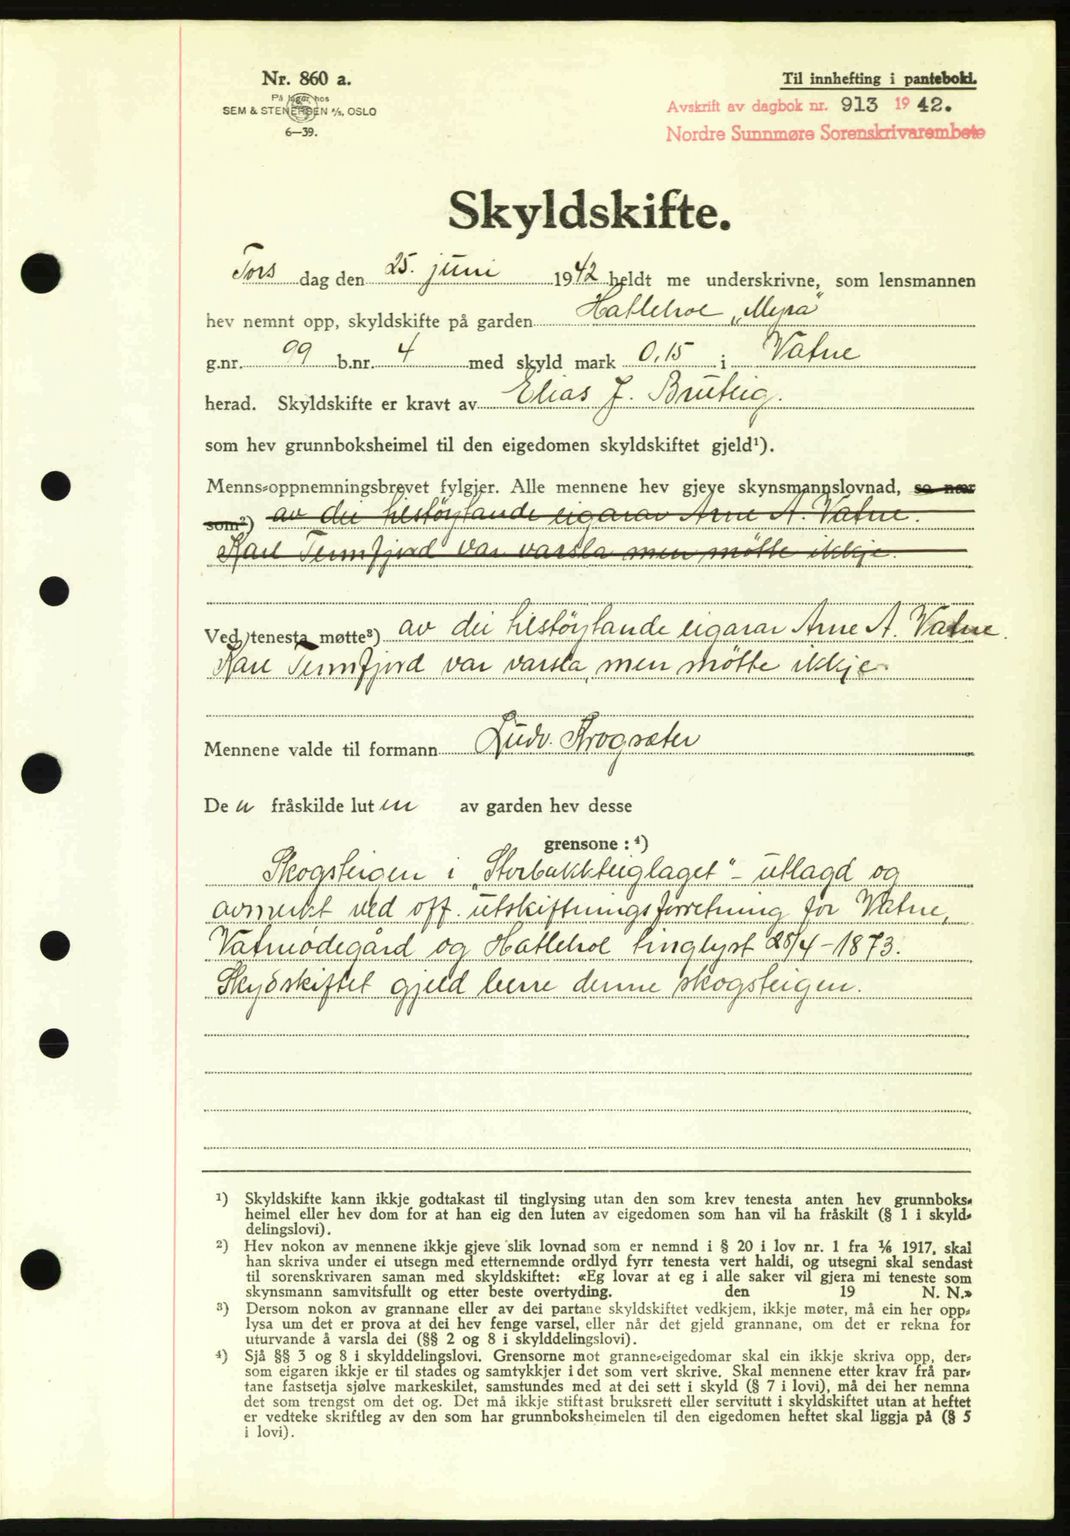 Nr. 860 a.
På lager hos
SEM & STENERSEN A/S, OSLO
6—39.
Til innhefting i pantebok.
Avskrift av dagbok nr. 913 1942.
Nordre Sunnmøre Sorenskrivarembete
Skyldskifte.
Tors dag den 25. juni 1942 heldt me underskrivne, som lensmannen
hev nemnt opp, skyldskifte på garden Hatlehol „Myra"
g.nr. 99 b.nr. 4 med skyld mark 0,15 i Vatne
herad. Skyldskifte er kravt av Elias J. Bruteig.
som hev grunnboksheimel til den eigedomen skyldskiftet gjeld¹).
Menns-oppnemningsbrevet fylgjer. Alle mennene hev gjeve skynsmannslovnad, so nær
som²) av dei hestøytande eigarar Arne A. Vatne.
Karl Tennfjord var varsla men møtte ikkje.
Ved tenesta møtte³) av dei hestøytande eigarar Arne A. Vatne.
Karl Tennfjord var varsla, men møtte ikkje.
Mennene valde til formann Ludv. Krogsæter
De n fråskilde lut en av garden hev desse
grensone : ⁴)
Skogsteigen i "Storbakkteiglaget" - utlagd og
avmerkt ved off. utskiftningsforretning for Vatne,
Vatneødegård og Hatlehol tinglyst 28/4 - 1873.
Skyldskiftet gjeld berre denne skogsteigen.
¹) Skyldskifte kann ikkje godtakast til tinglysing utan den som krev tenesta anten hev grunnboks-
heimel eller hev dom for at han eig den luten av eigedomen som han vil ha fråskilt (§ 1 i skyld-
delingslovi).
²) Hev nokon av mennene ikkje gjeve slik lovnad som er nemnd i § 20 i lov nr. 1 fra 1/6 1917, skal
han skriva under ei utsegn med etternemnde ordlyd fyrr tenesta vert haldi, og utsegni skal sendast
til sorenskrivaren saman med skyldskiftet: «Eg lovar at eg i alle saker vil gjera mi teneste som
skynsmann samvitsfullt og etter beste overtyding. den 19 N. N.»
³) Dersom nokon av grannane eller av dei partane skyldskiftet vedkjem, ikkje møter, må ein her opp-
lysa um det er prova at dei hev fenge varsel, eller når det gjeld grannane, om det er rekna for
uturvande å varsla dei (§§ 2 og 8 i skylddelingslovi).
⁴) Sjå §§ 3 og 8 i skylddelingslovi. Grensorne mot granne-eigedomar skal ein ikkje skriva opp, der-
som eigaren ikkje er til stades og samtykkjer i det som vert skrive. Skal mennene etter krav frå par-
tane fastsetja sjølve markeskilet, samstundes med at dei sett i skyld (§ 7 i lovi), må dei her nemna
det som trengst om det og. Det må ikkje stiftast bruksrett eller servitutt i skyldskiftet utan at heftet
er vedteke skriftleg av den som har grunnboksheimelen til den eigedomen heftet skal liggja på (§ 5
i lovi).